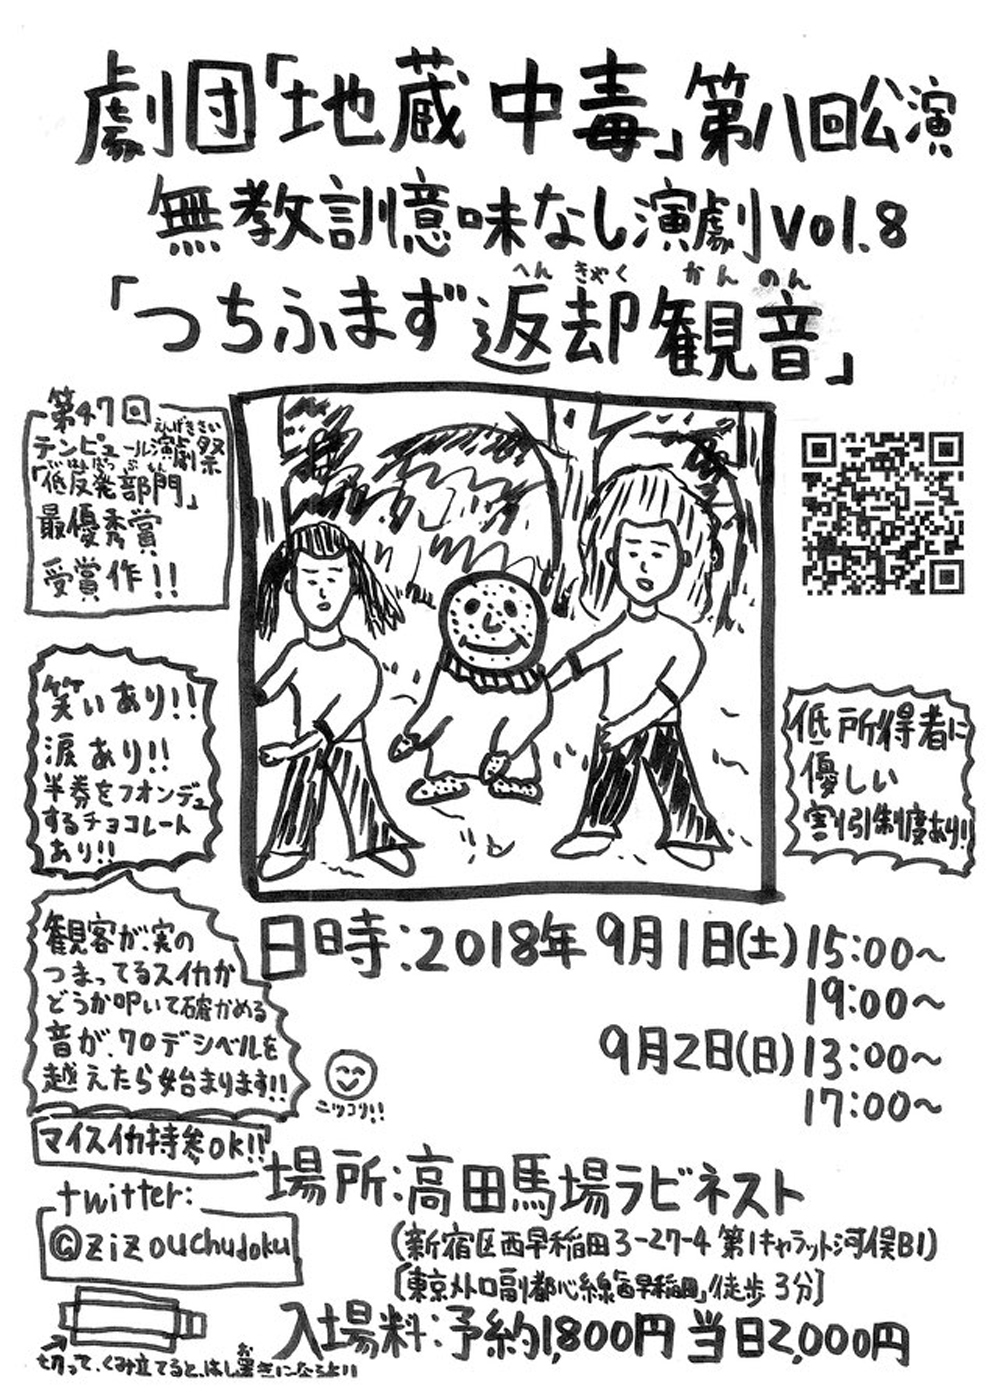 劇団「地蔵中毒」第八回公演
無教訓意味なし演劇vol.8
へんきゃく かんのん
「つちふまず返却観音」
第47回
えんげきさい
テンピュール演劇祭
ていはんぱつぶもん
「低反発部門」
最優秀賞
受賞作!!
笑いあり!!
涙あり!!
半券をフォンデュ
するチョコレート
あり!!
低所得者に
優しい
割引制度あり!!
観客が、実の
つまってるスイカか
どうか叩いて確かめる
音が、70デシベルを
越えたら始まります!!
ニッコリ!!
マイスイカ持参ok!!
twitter:
@zizouchudoku
日時:2018年9月1日(土)15:00~
19:00~
9月2日(日)13:00~
17:00~
場所:高田馬場ラビネスト
(新宿区西早稲田3-27-4 第1キャラット河俣B1)
[東京メトロ副都心線「西早稲田」徒歩3分]
入場料:予約1,800円 当日2,000円
お
切って、くみ立てると、はし置きになるよ!!